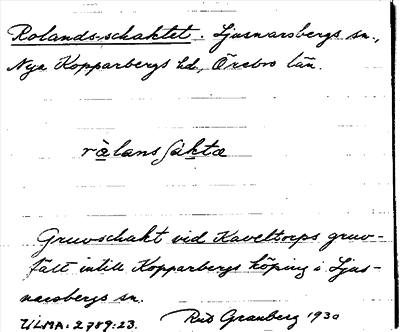 Rolands-schaktet. Ljusnarsbergs sn.,
Nya Kopparbergs hd, Örebro län.
ràlansʃàktə
Gruvschakt vid Kaveltorps gruv-
fält intill Kopparbergs köping i Ljus-
narsbergs sn.
ULMA: 2789:23. Granberg 1930